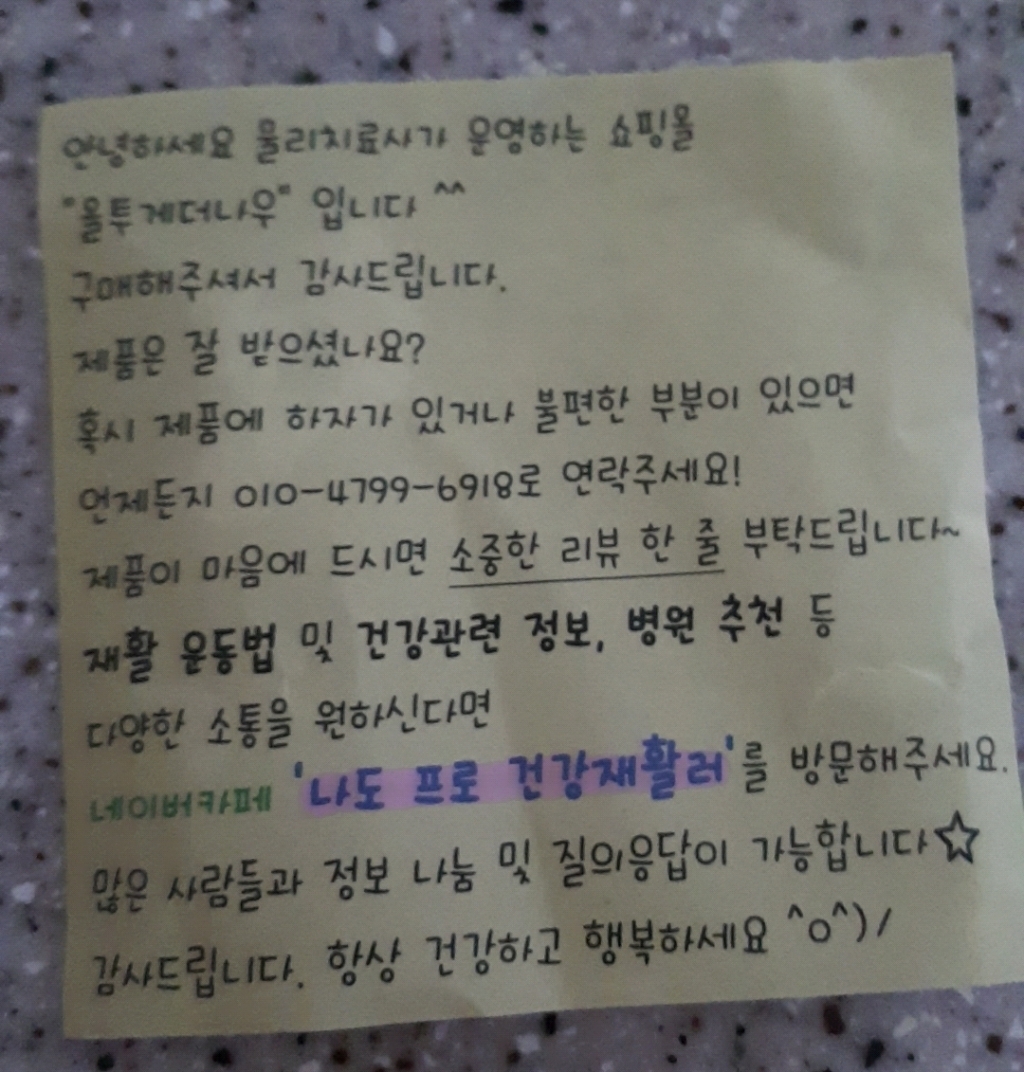 안녕하세요 물리치료사가 운영하는 쇼핑몰
"올투게더나우" 입니다 ^^
구매해주셔서 감사드립니다.
제품은 잘 받으셨나요?
혹시 제품에 하자가 있거나 불편한 부분이 있으면
언제든지 010-4799-6918로 연락주세요!
제품이 마음에 드시면 소중한 리뷰 한 줄 부탁드립니다~
재활 운동법 및 건강관련 정보, 병원 추천 등
다양한 소통을 원하신다면
네이버카페 '나도 프로 건강재활러'를 방문해주세요.
많은 사람들과 정보 나눔 및 질의응답이 가능합니다☆
감사드립니다. 항상 건강하고 행복하세요 ^o^)/